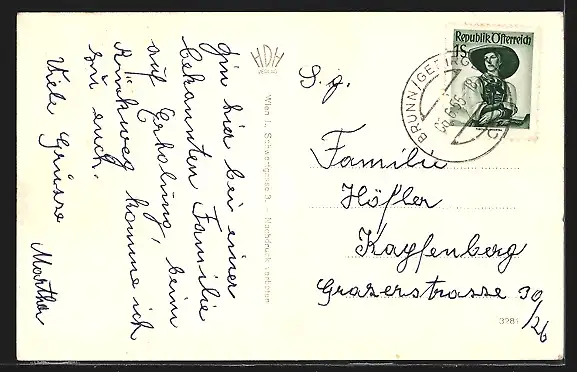 Bin hier bei einer
bekannten Familie
auf Erholung, beim
Rückweg komme ich
zu euch.
Viele Grüsse
Martha
HDH
Wien I., Schwertgasse 3 Nachdruck verboten
S. g.
Familie
Höfler
Kapfenberg
Grazerstrasse 30/26
3281
Republik Österreich
1S
BRUNN/GEBIRGE